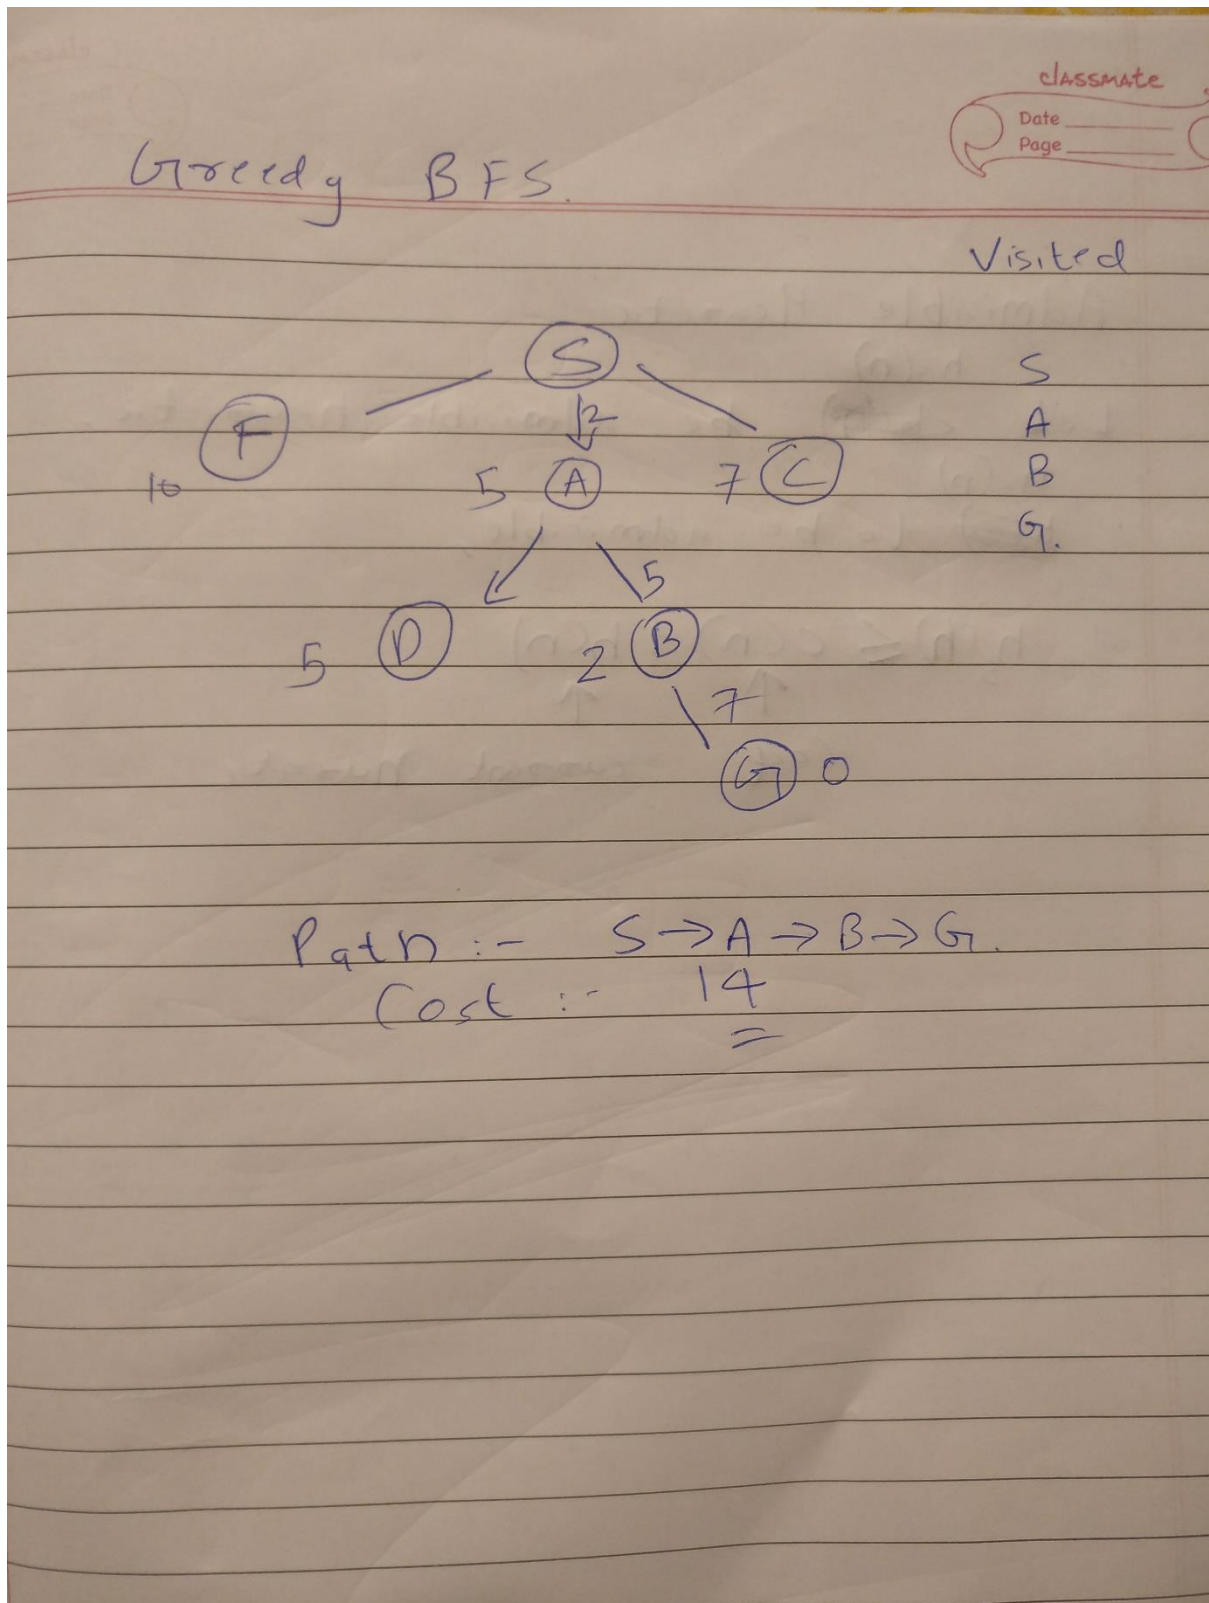 classmate
Date
Page
Greedy BFS.
Visited
S
S
2
F
A
10
5
A
7
C
B
G.
5
5
D
2
B
7
G
0
Path :- S → A → B → G.
Cost :- 14